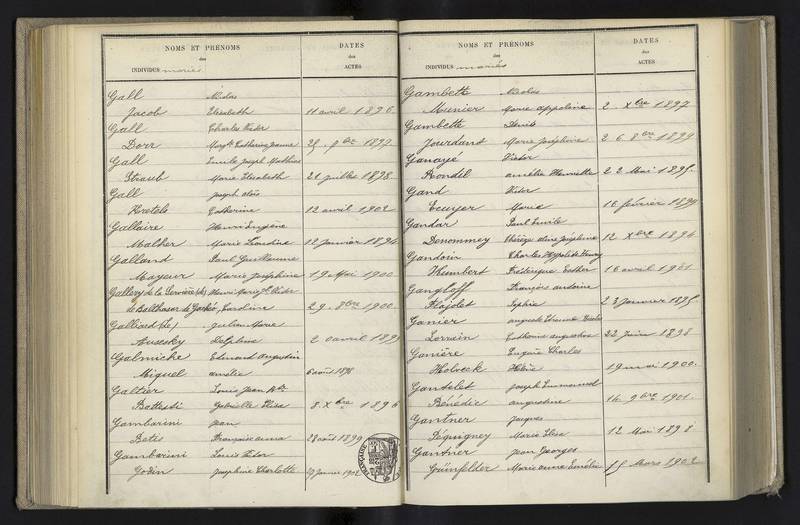 NOMS ET PRÉNOMS
des
INDIVIDUS mariés
DATES
des
ACTES
Gall Nicolas
Jacob Elisabeth 11 avril 1896
Gall Charles Victor
Dorr Catherine Jeanne 1897
Gall Emile Joseph Matthieu
Straub Marie Elisabeth 21 juillet 1898
Gall Joseph Aloïs
Catherine 12 avril 1902
Gallaire Henri Eugène
Malher Marie Léontine 12 janvier 1894
Galland Paul Guillaume
Mayeur Marie Joséphine 19 Mai 1900
Gallery de la Servière (de) Henri Marie
de Balthasar de Caroline 29. 8bre 1900
Galliard (Le) Marie
Delphine 2 avril
Galmiche Edmond Augustin
Miguel Amélie 6 août 1898
Galtier Louis Jean
Battesti Gabrielle Elisa 8. Xbre 1896
Gambarini Jean
Betis Françoise Anna 28 août 1899
Gambarini Louis
Godin Joséphine Charlotte Janvier 1902
NOMS ET PRÉNOMS
des
INDIVIDUS mariés
DATES
des
ACTES
Gambette Nicolas
Munier Marie Appoline 2. Xbre 1897
Gambette
Jourdand Marie Joséphine 26 8bre 1899
Ganayé Victor
Rondel Amélie Henriette 22 Mai 1895.
Gand Victor
Ecuyer Marie 16 février 1899
Gandar Paul Emile
Denommey Thérèse Aline Joséphine 12 Xbre 1894
Gandoin Charles Hyppolite Henry
Humbert Frédérique Esther 16 avril 1901
Gangloff François Antoine
Hajolet Sophie 23 Janvier 1895.
Ganier Auguste Etienne
Lorrain Catherine Augustine 22 Juin 1898
Ganière Eugène Charles
Holveck Hélène 19 mai 1900.
Gantelet Joseph Emmanuel
Bénédic Augustine 16. 9bre 1901.
Gantner Jacques
Péquigney Marie Elisa 12 Mai 1898
Gantner Jean Georges
Grünfelder Marie Anne Emélie 15 Mars 1902